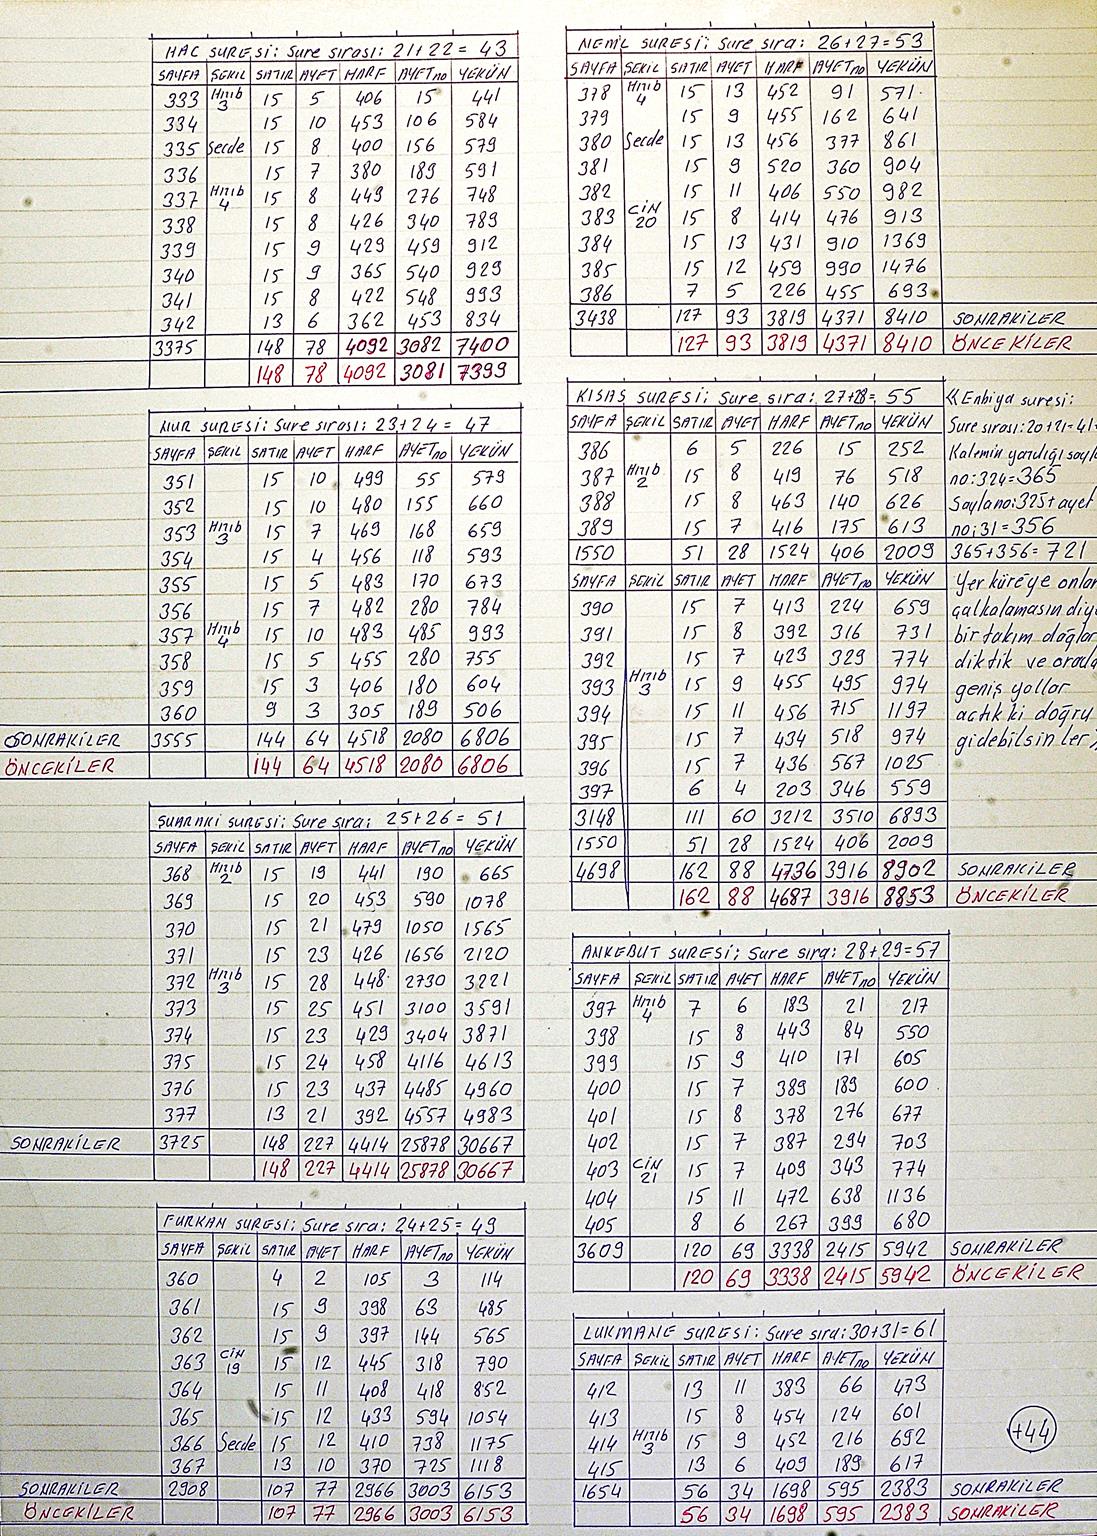 HAC SURESİ: Sure sırası: 21+22= 43
SAYFA ŞEKİL SATIR AYET HARF AYET no YEKÜN
333 Hmb 3 15 5 406 15 441
334 15 10 453 106 584
335 Secde 15 8 400 156 579
336 15 7 380 189 591
337 Hmb 4 15 8 449 276 748
338 15 8 426 340 789
339 15 9 429 459 912
340 15 9 365 540 929
341 15 8 422 548 993
342 13 6 362 453 834
3375 148 78 4092 3082 7400
148 78 4092 3081 7399
NUR SURESİ: Sure sırası: 23+24= 47
SAYFA ŞEKİL SATIR AYET HARF AYET no YEKÜN
351 15 10 499 55 579
352 15 10 480 155 660
353 Hmb 3 15 7 469 168 659
354 15 4 456 118 593
355 15 5 483 170 673
356 15 7 482 280 784
357 Hmb 4 15 10 483 485 993
358 15 5 455 280 755
359 15 3 406 180 604
360 9 3 305 189 506
SONRAKİLER 3555 144 64 4518 2080 6806
ÖNCEKİLER 144 64 4518 2080 6806
ŞUARAKİ SURESİ: Sure sıra: 25+26= 51
SAYFA ŞEKİL SATIR AYET HARF AYET no YEKÜN
368 Hmb 2 15 19 441 190 665
369 15 20 453 590 1078
370 15 21 479 1050 1565
371 15 23 426 1656 2120
372 Hmb 3 15 28 448 2730 3221
373 15 25 451 3100 3591
374 15 23 429 3404 3871
375 15 24 458 4116 4613
376 15 23 437 4485 4960
377 13 21 392 4557 4983
SONRAKİLER 3725 148 227 4414 25878 30667
148 227 4414 25878 30667
FURKAN SURESİ: Sure sıra: 24+25= 49
SAYFA ŞEKİL SATIR AYET HARF AYET no YEKÜN
360 4 2 105 3 114
361 15 9 398 63 485
362 15 9 397 144 565
363 CİN 19 15 12 445 318 790
364 15 11 408 418 852
365 15 12 433 594 1054
366 Secde 15 12 410 738 1175
367 13 10 370 725 1118
SONRAKİLER 2908 107 77 2966 3003 6153
ÖNCEKİLER 107 77 2966 3003 6153
NEML SURESİ: Sure sıra: 26+27=53
SAYFA ŞEKİL SATIR AYET HARF AYET no YEKÜN
378 Hmb 4 15 13 452 91 571
379 15 9 455 162 641
380 Secde 15 13 456 377 861
381 15 9 520 360 904
382 15 11 406 550 982
383 CİN 20 15 8 414 476 913
384 15 13 431 910 1369
385 15 12 459 990 1476
386 7 5 226 455 693
3438 127 93 3819 4371 8410 SONRAKİLER
127 93 3819 4371 8410 ÖNCEKİLER
KISAS SURESİ: Sure sıra: 27+28= 55
SAYFA ŞEKİL SATIR AYET HARF AYET no YEKÜN
386 6 5 226 15 252
387 Hmb 2 15 8 419 76 518
388 15 8 463 140 626
389 15 7 416 175 613
1550 51 28 1524 406 2009
SAYFA ŞEKİL SATIR AYET HARF AYET no YEKÜN
390 15 7 413 224 659
391 15 8 392 316 731
392 15 7 423 329 774
393 Hmb 3 15 9 455 495 974
394 15 11 456 715 1197
395 15 7 434 518 974
396 15 7 436 567 1025
397 6 4 203 346 559
3148 111 60 3212 3510 6893
1550 51 28 1524 406 2009
4698 162 88 4736 3916 8902 SONRAKİLER
162 88 4687 3916 8853 ÖNCEKİLER
<< Enbiya suresi:
Sure sırası: 20+21=41
Kalemin yardığı sayfa
no: 324=365
Sayfa no: 325+ayet
no: 31=356
365+356=721
Yer küre'ye onlar
çalkalamasın diye
bir takım dağlar
diktik ve orada
geniş yollar
açtık ki doğru
gidebilsinler
ANKEBUT SURESİ: Sure sıra: 28+29=57
SAYFA ŞEKİL SATIR AYET HARF AYET no YEKÜN
397 Hmb 4 7 6 183 21 217
398 15 8 443 84 550
399 15 9 410 171 605
400 15 7 389 189 600
401 15 8 378 276 677
402 15 7 387 294 703
403 CİN 21 15 7 409 343 774
404 15 11 472 638 1136
405 8 6 267 399 680
3609 120 69 3338 2415 5942 SONRAKİLER
120 69 3338 2415 5942 ÖNCEKİLER
LUKMANE SURESİ: Sure sıra: 30+31=61
SAYFA ŞEKİL SATIR AYET HARF AYET no YEKÜN
412 13 11 383 66 473
413 15 8 454 124 601
414 Hmb 3 15 9 452 216 692
415 13 6 409 189 617
1654 56 34 1698 595 2383 SONRAKİLER
56 34 1698 595 2383 SONRAKİLER
+44